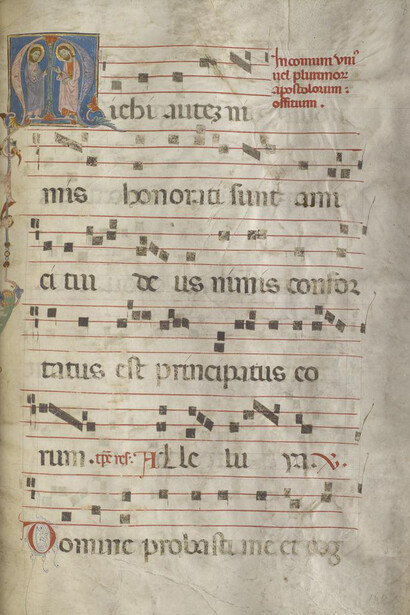 In comuni uniꝰ
uel plurimoꝝ
apostolorum :
officium .
Michi autez ni
mis honorati sunt ami
ci tui de us nimis confor
tatus est principatus eo
rum . A L le lu ya .
Domine probasti me et cog